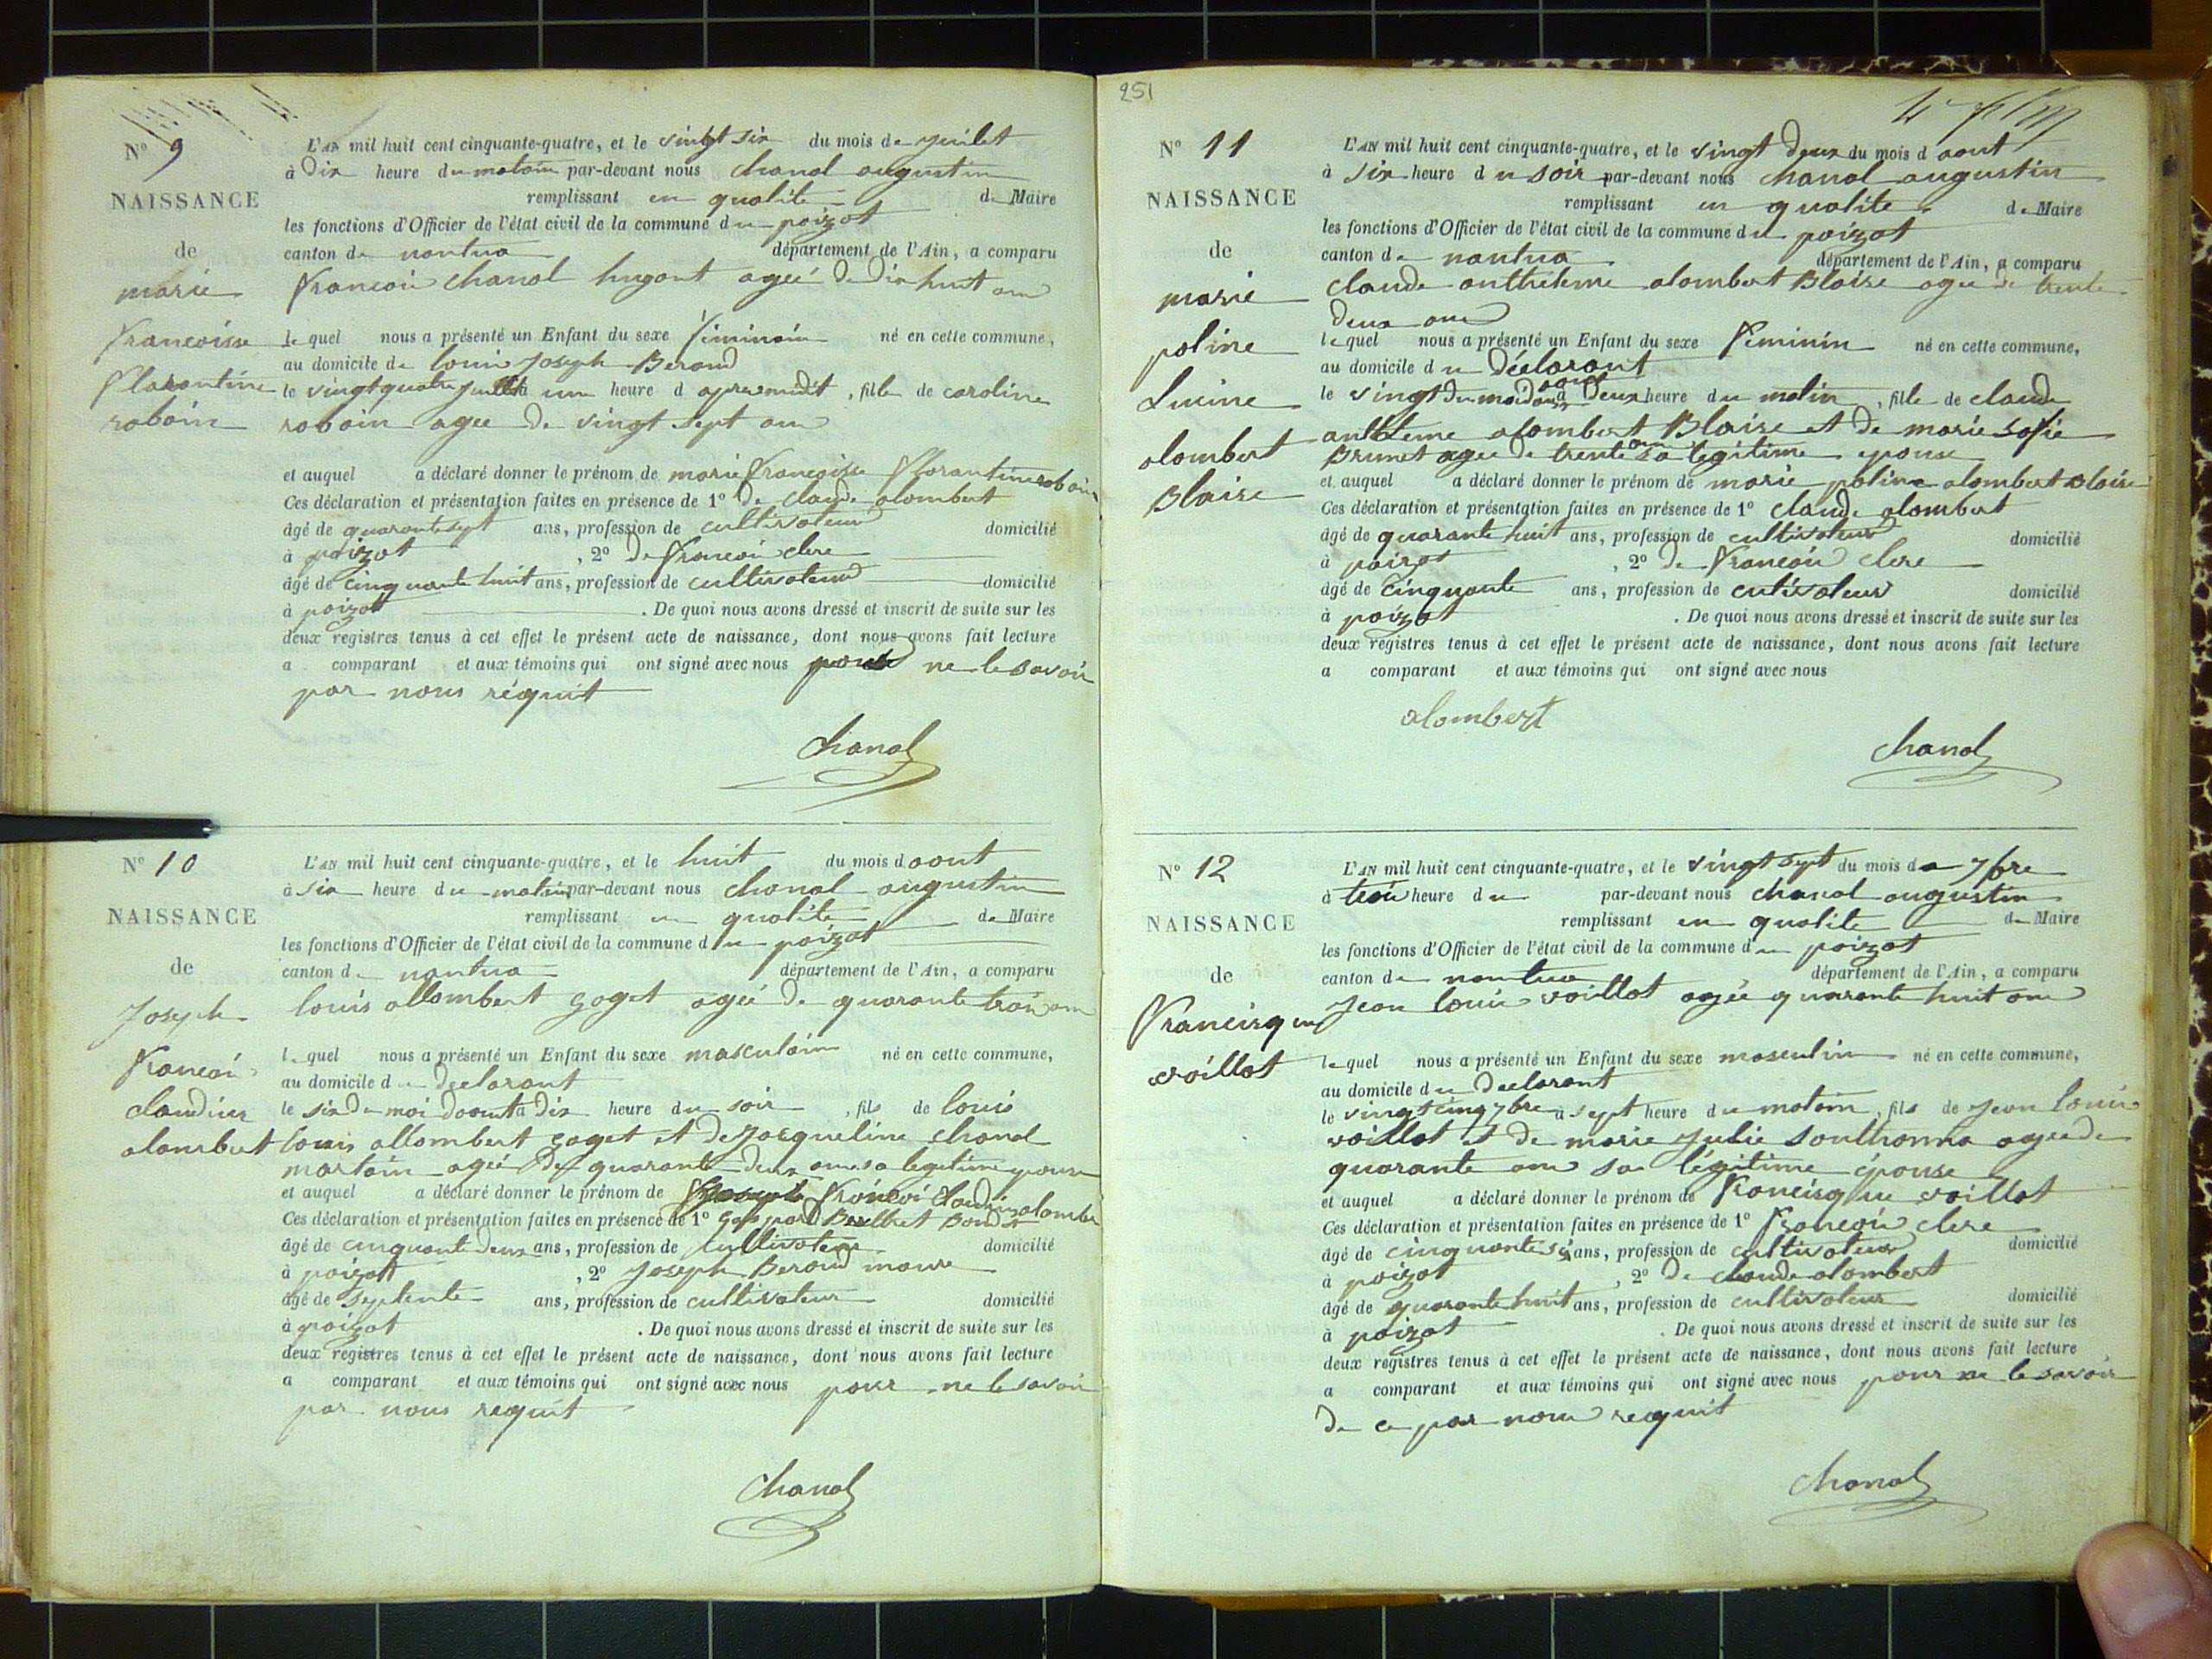 N° 9
NAISSANCE
de
marie
francoisse
florantine
robain
L'AN mil huit cent cinquante-quatre, et le vingt six du mois de juilet
à dix heure du matain par-devant nous chanal augustin
remplissant en qualité de Maire
les fonctions d'Officier de l'état civil de la commune du poizat
canton de nantua département de l'Ain, a comparu
francoi chanal hugont agéé de dix huit an
le quel nous a présenté un Enfant du sexe féminain né en cette commune,
au domicile de louis joseph Beroud
le vingt quatre juillet à une heure d apresmidit, fille de caroline
robain agee de vingt sept ans
et auquel a déclaré donner le prénom de marie francoisse florantine robain
Ces déclaration et présentation faites en présence de 1° de claude alombert
âgé de quarante sept ans, profession de cultivateur domicilié
à poizat, 2° de francoi clere
âgé de cinquante huit ans, profession de cultivateur domicilié
à poizat. De quoi nous avons dressé et inscrit de suite sur les
deux registres tenus à cet effet le présent acte de naissance, dont nous avons fait lecture
a comparant et aux témoins qui ont signé avec nous pour ne le savoir
par nous réquit
chanal
N° 10
NAISSANCE
de
Joseph
francoi
claudius
alombert
L'AN mil huit cent cinquante-quatre, et le huit du mois d aout
à six heure du matin par-devant nous chanal augustin
remplissant en qualité de Maire
les fonctions d'Officier de l'état civil de la commune du poizat
canton de nantua département de l'Ain, a comparu
louis allombert goget agéé de quarante troi an
le quel nous a présenté un Enfant du sexe masculain né en cette commune,
au domicile du declarant
le six de moi daout à dix heure du soir, fils de louis
louis allombert goget et de jacqueline chanal
martain agéé de quarante deux ans sa legitime epouse
et auquel a déclaré donner le prénom de joseph francoi claudius alomber
Ces déclaration et présentation faites en présence de 1° gaspard
âgé de cinquante deux ans, profession de cultivateur domicilié
à poizat, 2° joseph Beroud
âgé de septente ans, profession de cultivateur domicilié
à poizat. De quoi nous avons dressé et inscrit de suite sur les
deux registres tenus à cet effet le présent acte de naissance, dont nous avons fait lecture
a comparant et aux témoins qui ont signé avec nous pour ne le savoir
par nous requit
chanal
251
N° 11
NAISSANCE
de
marie
poline
Lucine
alombert
Blaise
L'AN mil huit cent cinquante-quatre, et le vingt deux du mois d aout
à six heure du soir par-devant nous chanal augustin
remplissant en qualité de Maire
les fonctions d'Officier de l'état civil de la commune du poizat
canton de nantua département de l'Ain, a comparu
claude antheleme alombert Blaise agee de trente
deux ans
le quel nous a présenté un Enfant du sexe féminin né en cette commune,
au domicile du déclarant
le vingt du moi daout à deux heure du matin, fille de claude
antleme alombert Blaise et de marie sofie
Brunet agee de trente ans sa légitime epouse
et auquel a déclaré donner le prénom de marie poline alombert Blaise
Ces déclaration et présentation faites en présence de 1° claude alombert
âgé de quarante huit ans, profession de cultivateur domicilié
à poizat, 2° de francoi clere
âgé de cinquante ans, profession de cutivateur domicilié
à poizat. De quoi nous avons dressé et inscrit de suite sur les
deux registres tenus à cet effet le présent acte de naissance, dont nous avons fait lecture
a comparant et aux témoins qui ont signé avec nous
alombert
chanal
N° 12
NAISSANCE
de
francisque
voillot
L'AN mil huit cent cinquante-quatre, et le vingt sept du mois de 7bre
à troi heure du par-devant nous chanal augustin
remplissant en qualité de Maire
les fonctions d'Officier de l'état civil de la commune du poizat
canton de nantua département de l'Ain, a comparu
jean louis voillot agée quarante huit ans
le quel nous a présenté un Enfant du sexe masculin né en cette commune,
au domicile du declarant
le vingt cinq 7bre à sept heure du matain, fils de jean louis
voillot et de marie julie southonna agee de
quarante ans sa légitime épouse
et auquel a déclaré donner le prénom de francisque voillot
Ces déclaration et présentation faites en présence de 1° francoi clere
âgé de cinquante six ans, profession de cultivateur domicilié
à poizat, 2° de claude alombert
âgé de quarante huit ans, profession de cultivateur domicilié
à poizat. De quoi nous avons dressé et inscrit de suite sur les
deux registres tenus à cet effet le présent acte de naissance, dont nous avons fait lecture
a comparant et aux témoins qui ont signé avec nous pour ne le savoir
de ce par nous requit
chanal